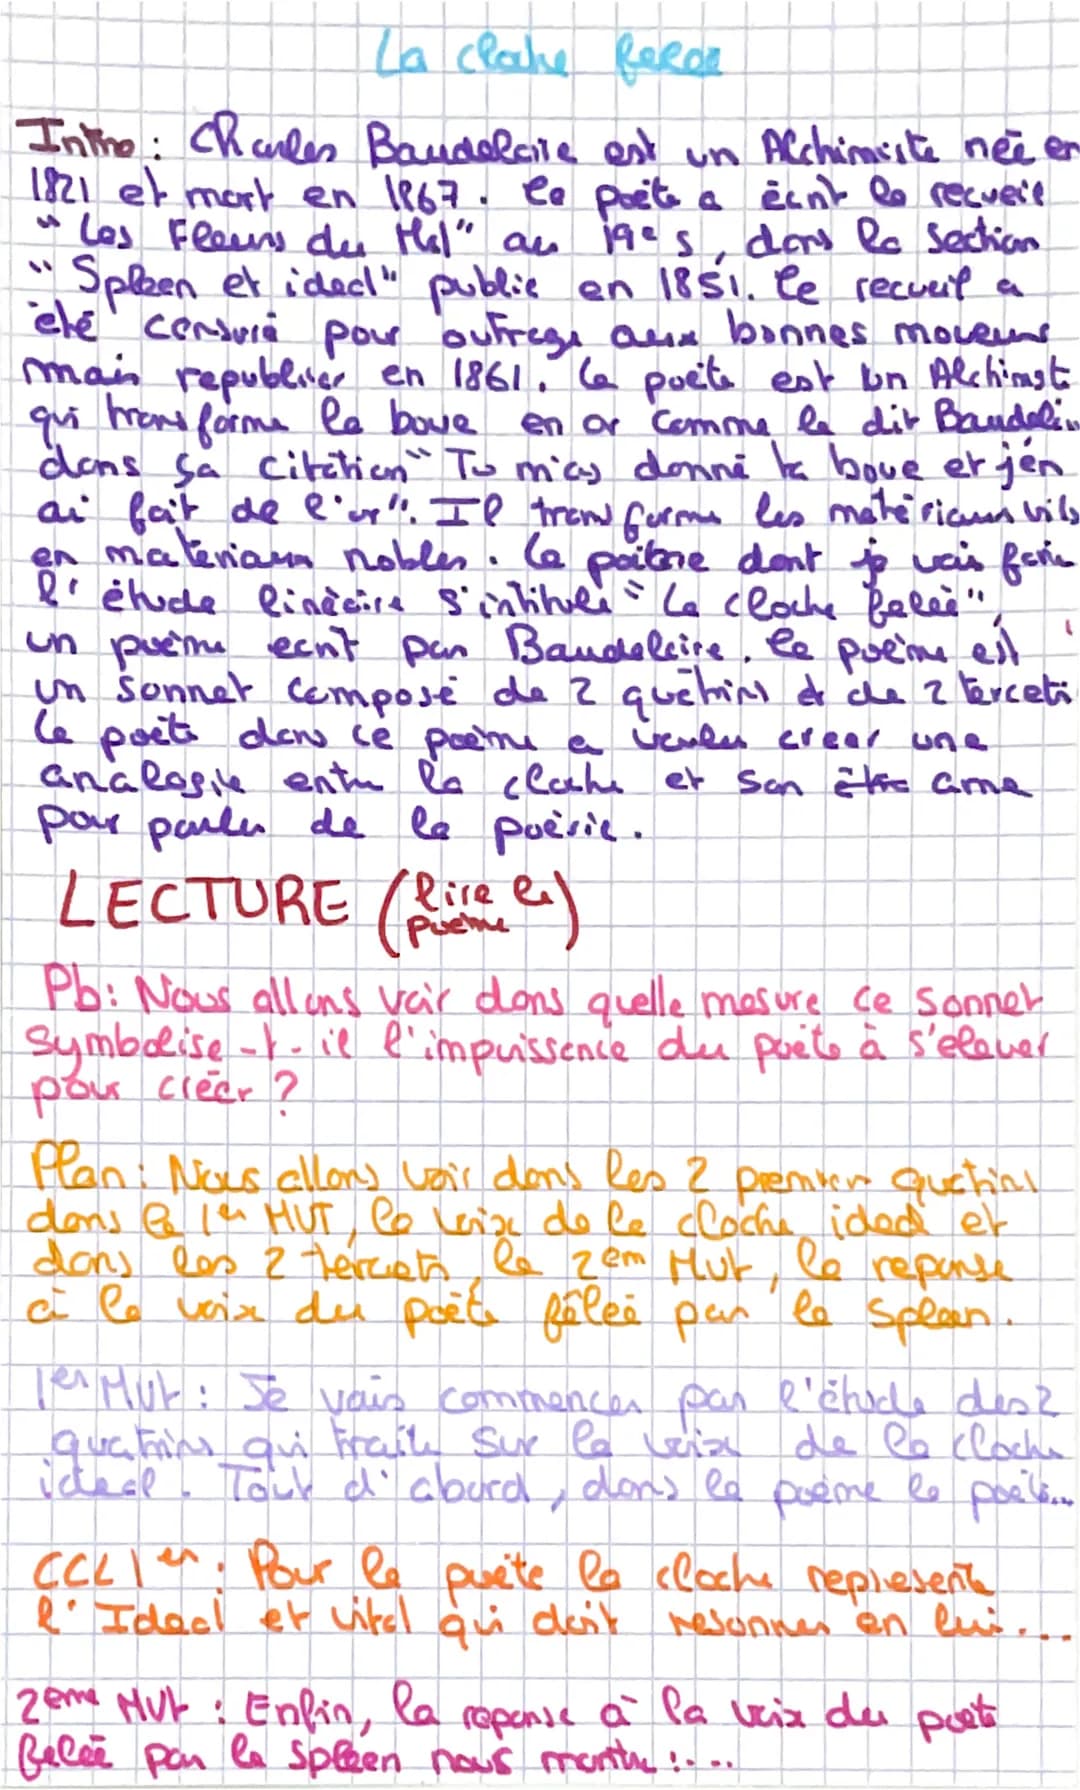 La cloche felée
Intro : Charles Baudelaire est un Alchimiste née en
1821 et mort en 1867. Le poète a écrit le recueil
"Les Fleurs du Mal" au 19e s, dans la section
"Spleen et ideal" publie en 1851. Ce recueil a
été censuré pour outrage aux bonnes moveurs
mais republier en 1861. Le poète est un Alchimist
qui transforme la boue en or comme le dit Baudelai
dans sa citation "Tu m'as donné ta boue et j'en
ai fait de l'or". Il transforme les matériaux vils
en materiaux nobles. Le poème dont je vais faire
l'étude linéaire s'intitule "La cloche felée",
un poème ecrit par Baudelaire. Le poème est
un sonnet composé de 2 quatrins et de 2 tercets
Le poète dans ce poème a voulu creer une
analogie entre la cloche et son être ame
pour parler de la poésie.
LECTURE (lire le
poème)
Pb: Nous allons voir dans quelle mesure ce sonnet
symbolise-t-il l'impuissence du poète à s'elever
pour créer ?
Plan: Nous allons voir dans les 2 premier quatrins
dans le 1er MVT, la voix de la cloche ideal et
dans les 2 tercets, le 2em Mvt, la reponse
à la voix du poète fêleé par le spleen.
1er Mvt : Je vais commencer par l'étude des 2
quatrins qui traite sur la voix de la cloche
ideal. Tout d'abord, dans le poème le poète...
CCL 1er : Pour le poète la cloche represente
l'Ideal et vital qui doit resonner en lui....
2eme Mvt : Enfin, la reponse à la voix du poete
feleé par le spleen nous montre :....